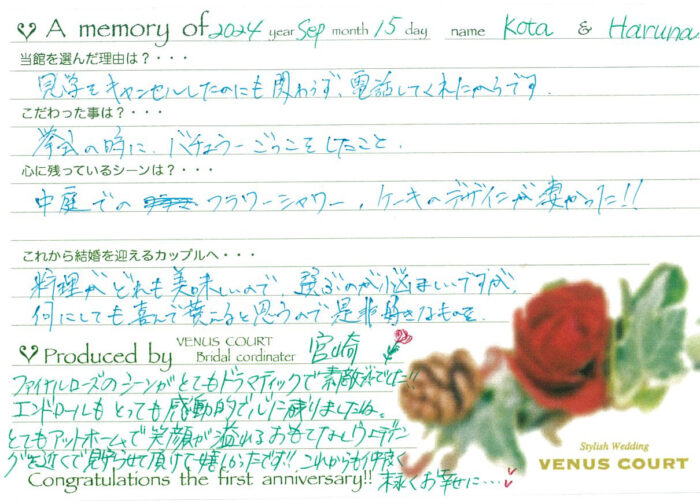 A memory of 2024 year Sep month 15 day name Kota & Haruna
当館を選んだ理由は？・・・
見学をキャンセルしたのにも関わらず、電話してくれたからです.
こだわった事は？・・・
挙式の時に、バチェラーごっこをしたこと.
心に残っているシーンは？・・・
中庭での フラワーシャワー、ケーキのデザインが凄かった!!
これから結婚を迎えるカップルへ・・・
料理がどれも美味しいので、選ぶのが悩ましいですが、
何にしても喜んで貰えると思うので是非好きなものを.
Produced by VENUS COURT Bridal cordinater 宮崎
ファイナルローズのシーンがとてもドラマティックで素敵でした!!
エンドロールもとっても感動的で心に残りましたね。
とてもアットホームで笑顔が溢れるおもてなしウェディン
グを近くで見守らせて頂けて嬉しかったです!! これからも仲良く
Congratulations the first anniversary!! 末永くお幸せに…
Stylish Wedding
VENUS COURT